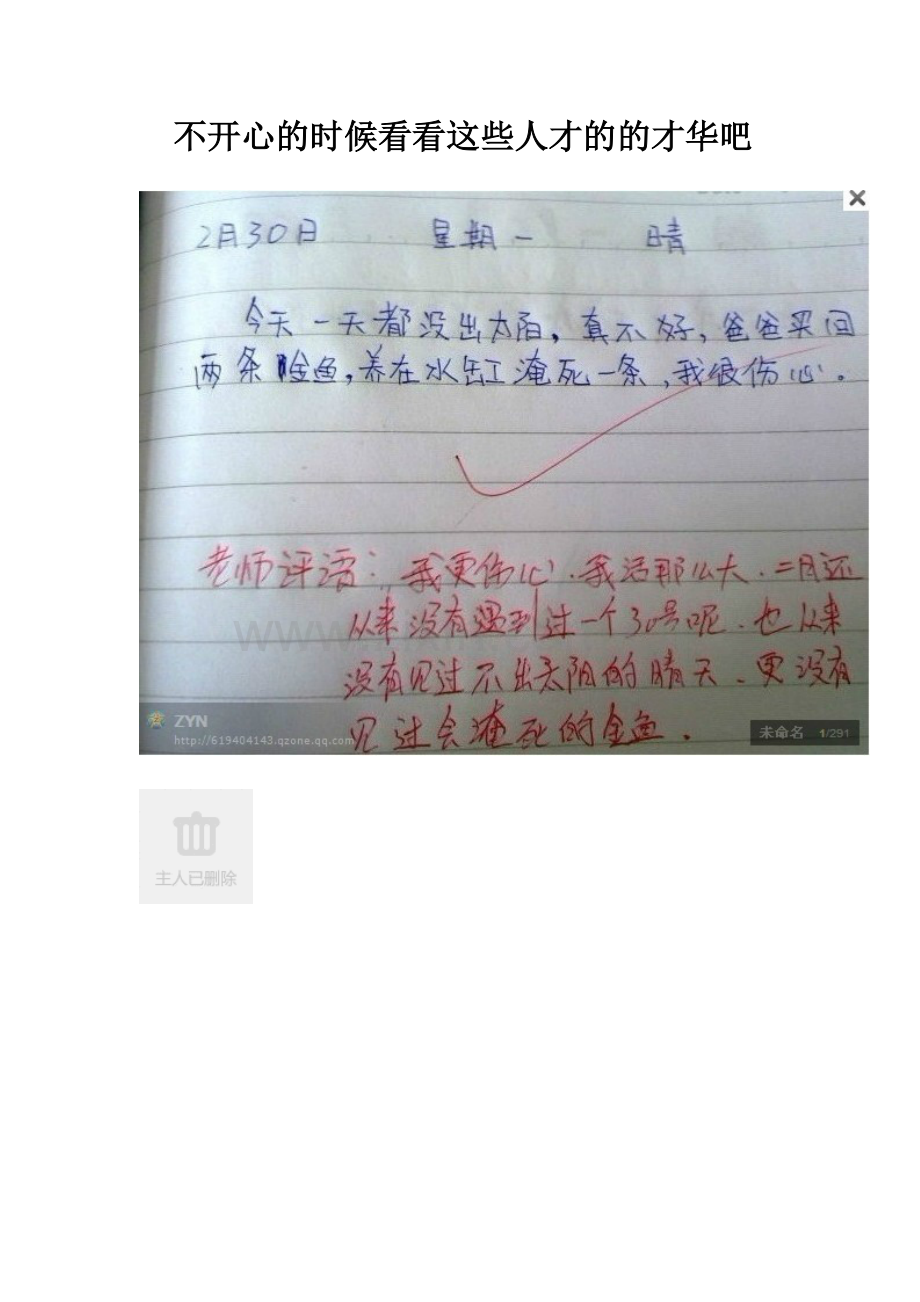 不开心的时候看看这些人才的的才华吧
2月30日 星期一 晴
今天一天都没出太陌，真不好，爸爸买回
两条金鱼，养在水缸淹死一条，我很伤心。
老师评语：我更伤心．我活那么大．二月还
从来没有遇到过一个30号呢．也从来
没有见过不出太阳的晴天．更没有
见过会淹死的金鱼．
www.
ZYN
http://619404143.qzone.qq.com
未命名 1/291
主人已删除